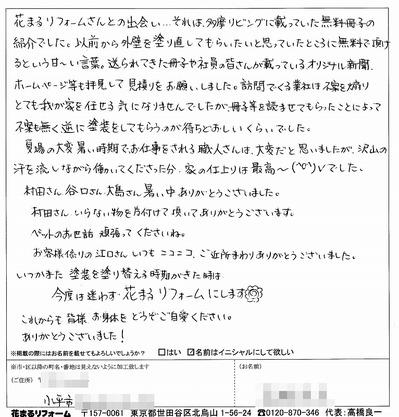 花まるリフォームさんとの出会い…それは、多摩リビングに載っていた無料冊子の
紹介でした。以前から外壁を塗り直してもらいたいと思っていたところに無料で頂け
るという甘〜い言葉。送られてきた冊子や社員の皆さんが載っているオリジナル新聞、
ホームページ等も拝見して見積りをお願いしました。訪問でくる業社は不安を煽り
とても我が家を任せる気になりませんでしたが、冊子等を読ませてもらったことによって
不安も無く逆に塗装をしてもらうのが待ちどおしいくらいでした。
夏場の大変暑い時期でお仕事をされる職人さんは、大変だと思いましたが、沢山の
汗を流しながら働いてくださった分、家の仕上りは最高〜(^o^)vでした。
村田さん、谷口さん、大島さん、暑い中ありがとうございました。
村田さん、いらない物を片付けて頂いてありがとうございます。
ペットのお世話 頑張ってくださいね。
お客様係りの江口さん いつも ニコニコ、ご近所まわりありがとうございました。
いつかまた 塗装を塗り替える時期がきた時は
今度は迷わず・花まるリフォームにします
これからも 皆様 お身体を どうぞご自愛ください。
ありがとうございました！
※掲載の際にはお名前を載せてもよろしいでしょうか？ □はい ☑お名前はイニシャルにして欲しい
※市・区以降の町名・番地は見えないように加工致します
(ご住所) (お名前)
小平市
花まるリフォーム 〒157-0061 東京都世田谷区北烏山1-56-24 ☎0120-870-346 代表:高橋良一